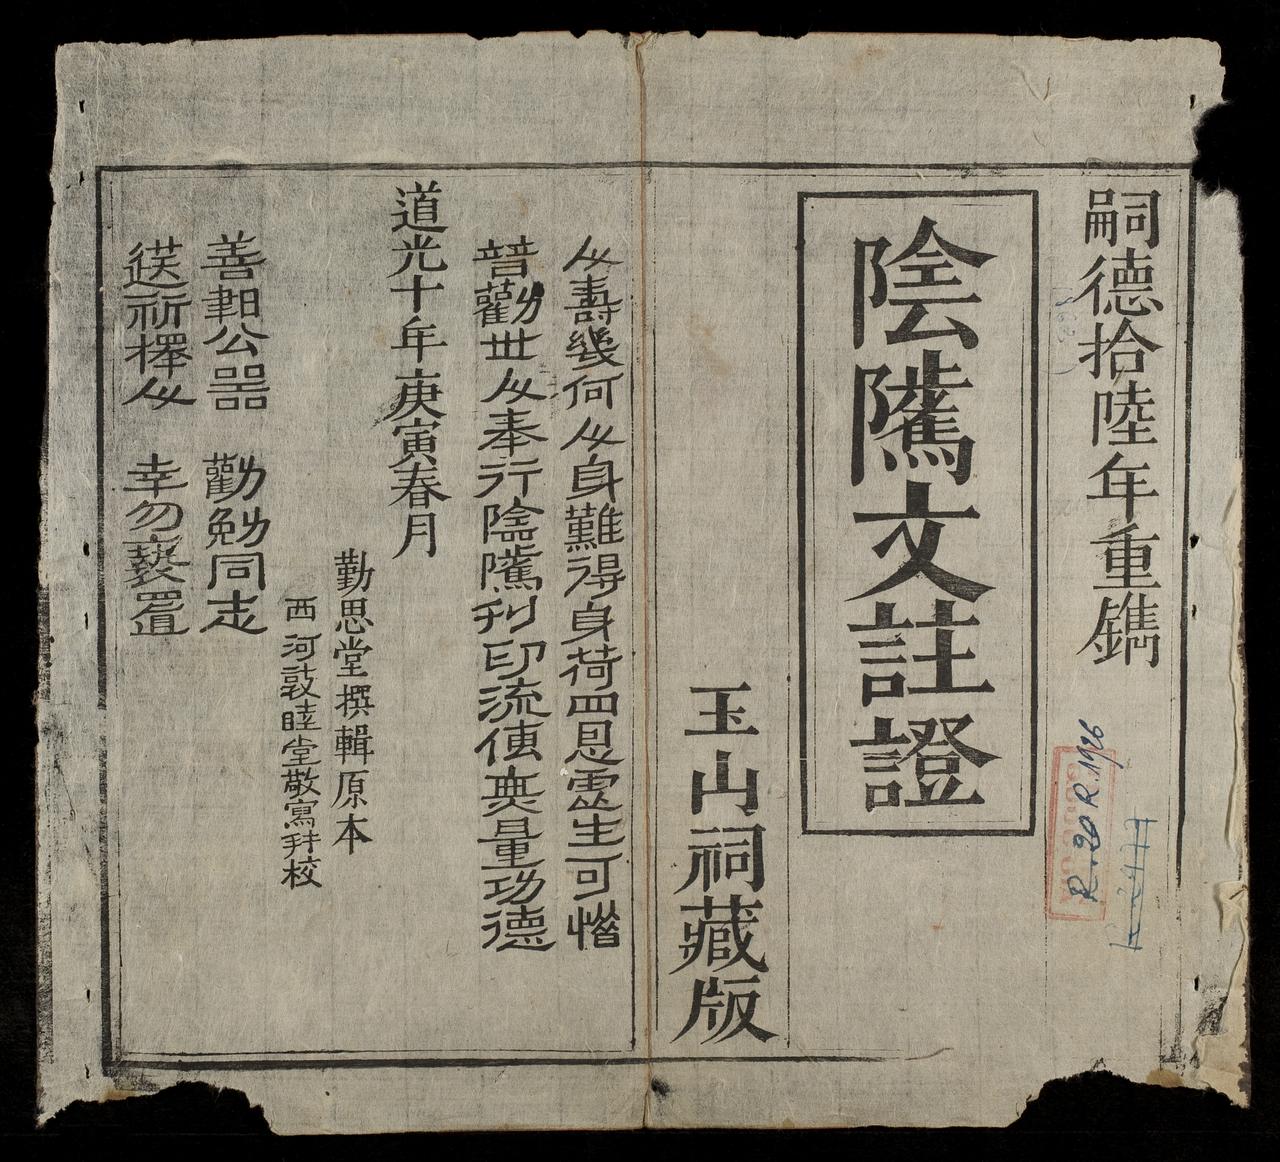 嗣德拾陸年重鐫
陰隲文註證
玉山祠藏版
人壽幾何人身難得身荷四恩靈生可惜
普勸世人奉行陰隲刊印流傳無量功德
道光十年庚寅春月
勤思堂撰輯原本
西河敦睦堂敬寫拜校
善書公器 勸勉同志
送祈擇人 幸勿褻置
R.20 R.1926